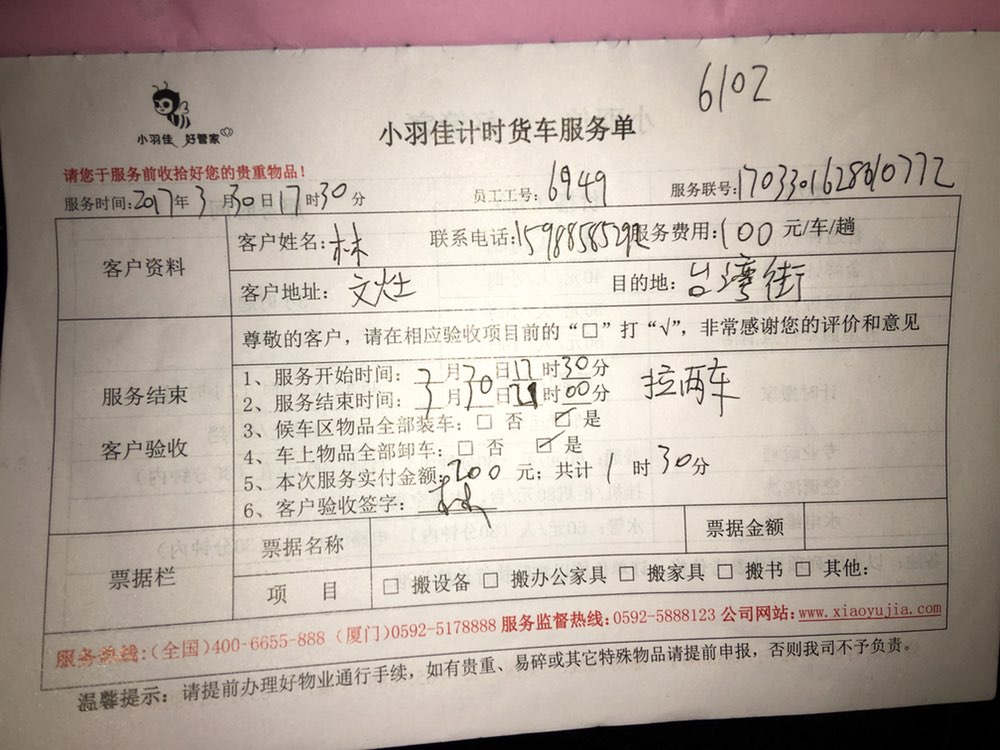 6102
小羽佳 好管家
小羽佳计时货车服务单
请您于服务前收拾好您的贵重物品！
服务时间：2017年3月30日17时30分 员工工号：6949 服务联号：1703301628610772
客户资料
客户姓名：林 联系电话：15988585292 服务费用：100元/车/趟
客户地址：文灶 目的地：台湾街
服务结束
客户验收
尊敬的客户，请在相应验收项目前的“□”打“√”，非常感谢您的评价和意见
1、服务开始时间：3月30日17时30分
拉两车
2、服务结束时间：3月30日 时00分
3、候车区物品全部装车：□ 否 ☑ 是
4、车上物品全部卸车：□ 否 ☑ 是
5、本次服务实付金额：200元；共计1时30分
6、客户验收签字：林
票据栏
票据名称 票据金额
项 目 □ 搬设备 □ 搬办公家具 □ 搬家具 □ 搬书 □ 其他：
服务热线：(全国)400-6655-888 (厦门)0592-5178888 服务监督热线：0592-5888123 公司网站：www.xiaoyujia.com
温馨提示：请提前办理好物业通行手续，如有贵重、易碎或其它特殊物品请提前申报，否则我司不予负责。